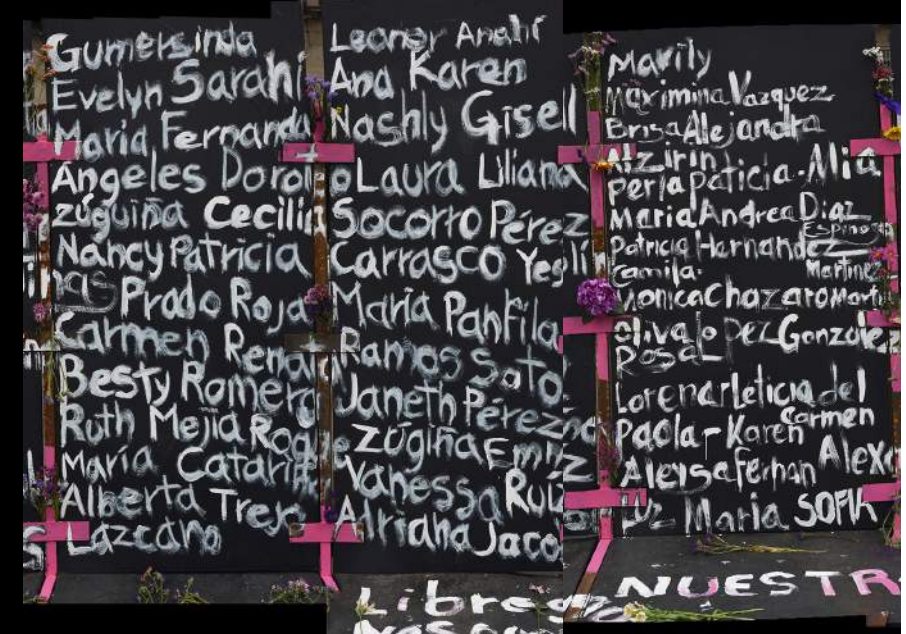 Gumersinda
Evelyn Sarahi
María Fernanda
Angeles Doroteo
zúguiña Cecilia
Nancy Patricia
Prado Rojas
Carmen Renata
Besty Romero
Ruth Mejia Roque
María Catarina
Alberta Trejo
Lazcano
Leonor Anahí
Ana Karen
Nashly Gisell
Laura Liliana
Socorro Pérez
Carrasco Yeslín
María Panfila
Ramos Soto
Janeth Pérez
Zúgiña
Vanessa Ruiz
Adriana Jaco
Libres
Marily
Maximina Vazquez
Brisa Alejandra
Perla Paticia-Mia
Maria Andrea Diaz
Espinosa
Patricia Hernandez
Camila Martinez
Monica Chazaro
Oliva Lopez Gonzalez
Rosa
Lorena Leticia del
Carmen
Paola-Karen
Aleysa Fernan
Luz Maria SOFIA
NUESTR